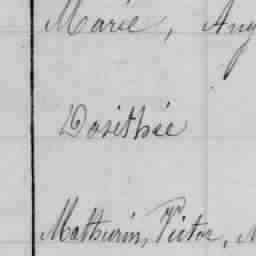 Marie, Ang
Dosithée
Mathurin, Victor,